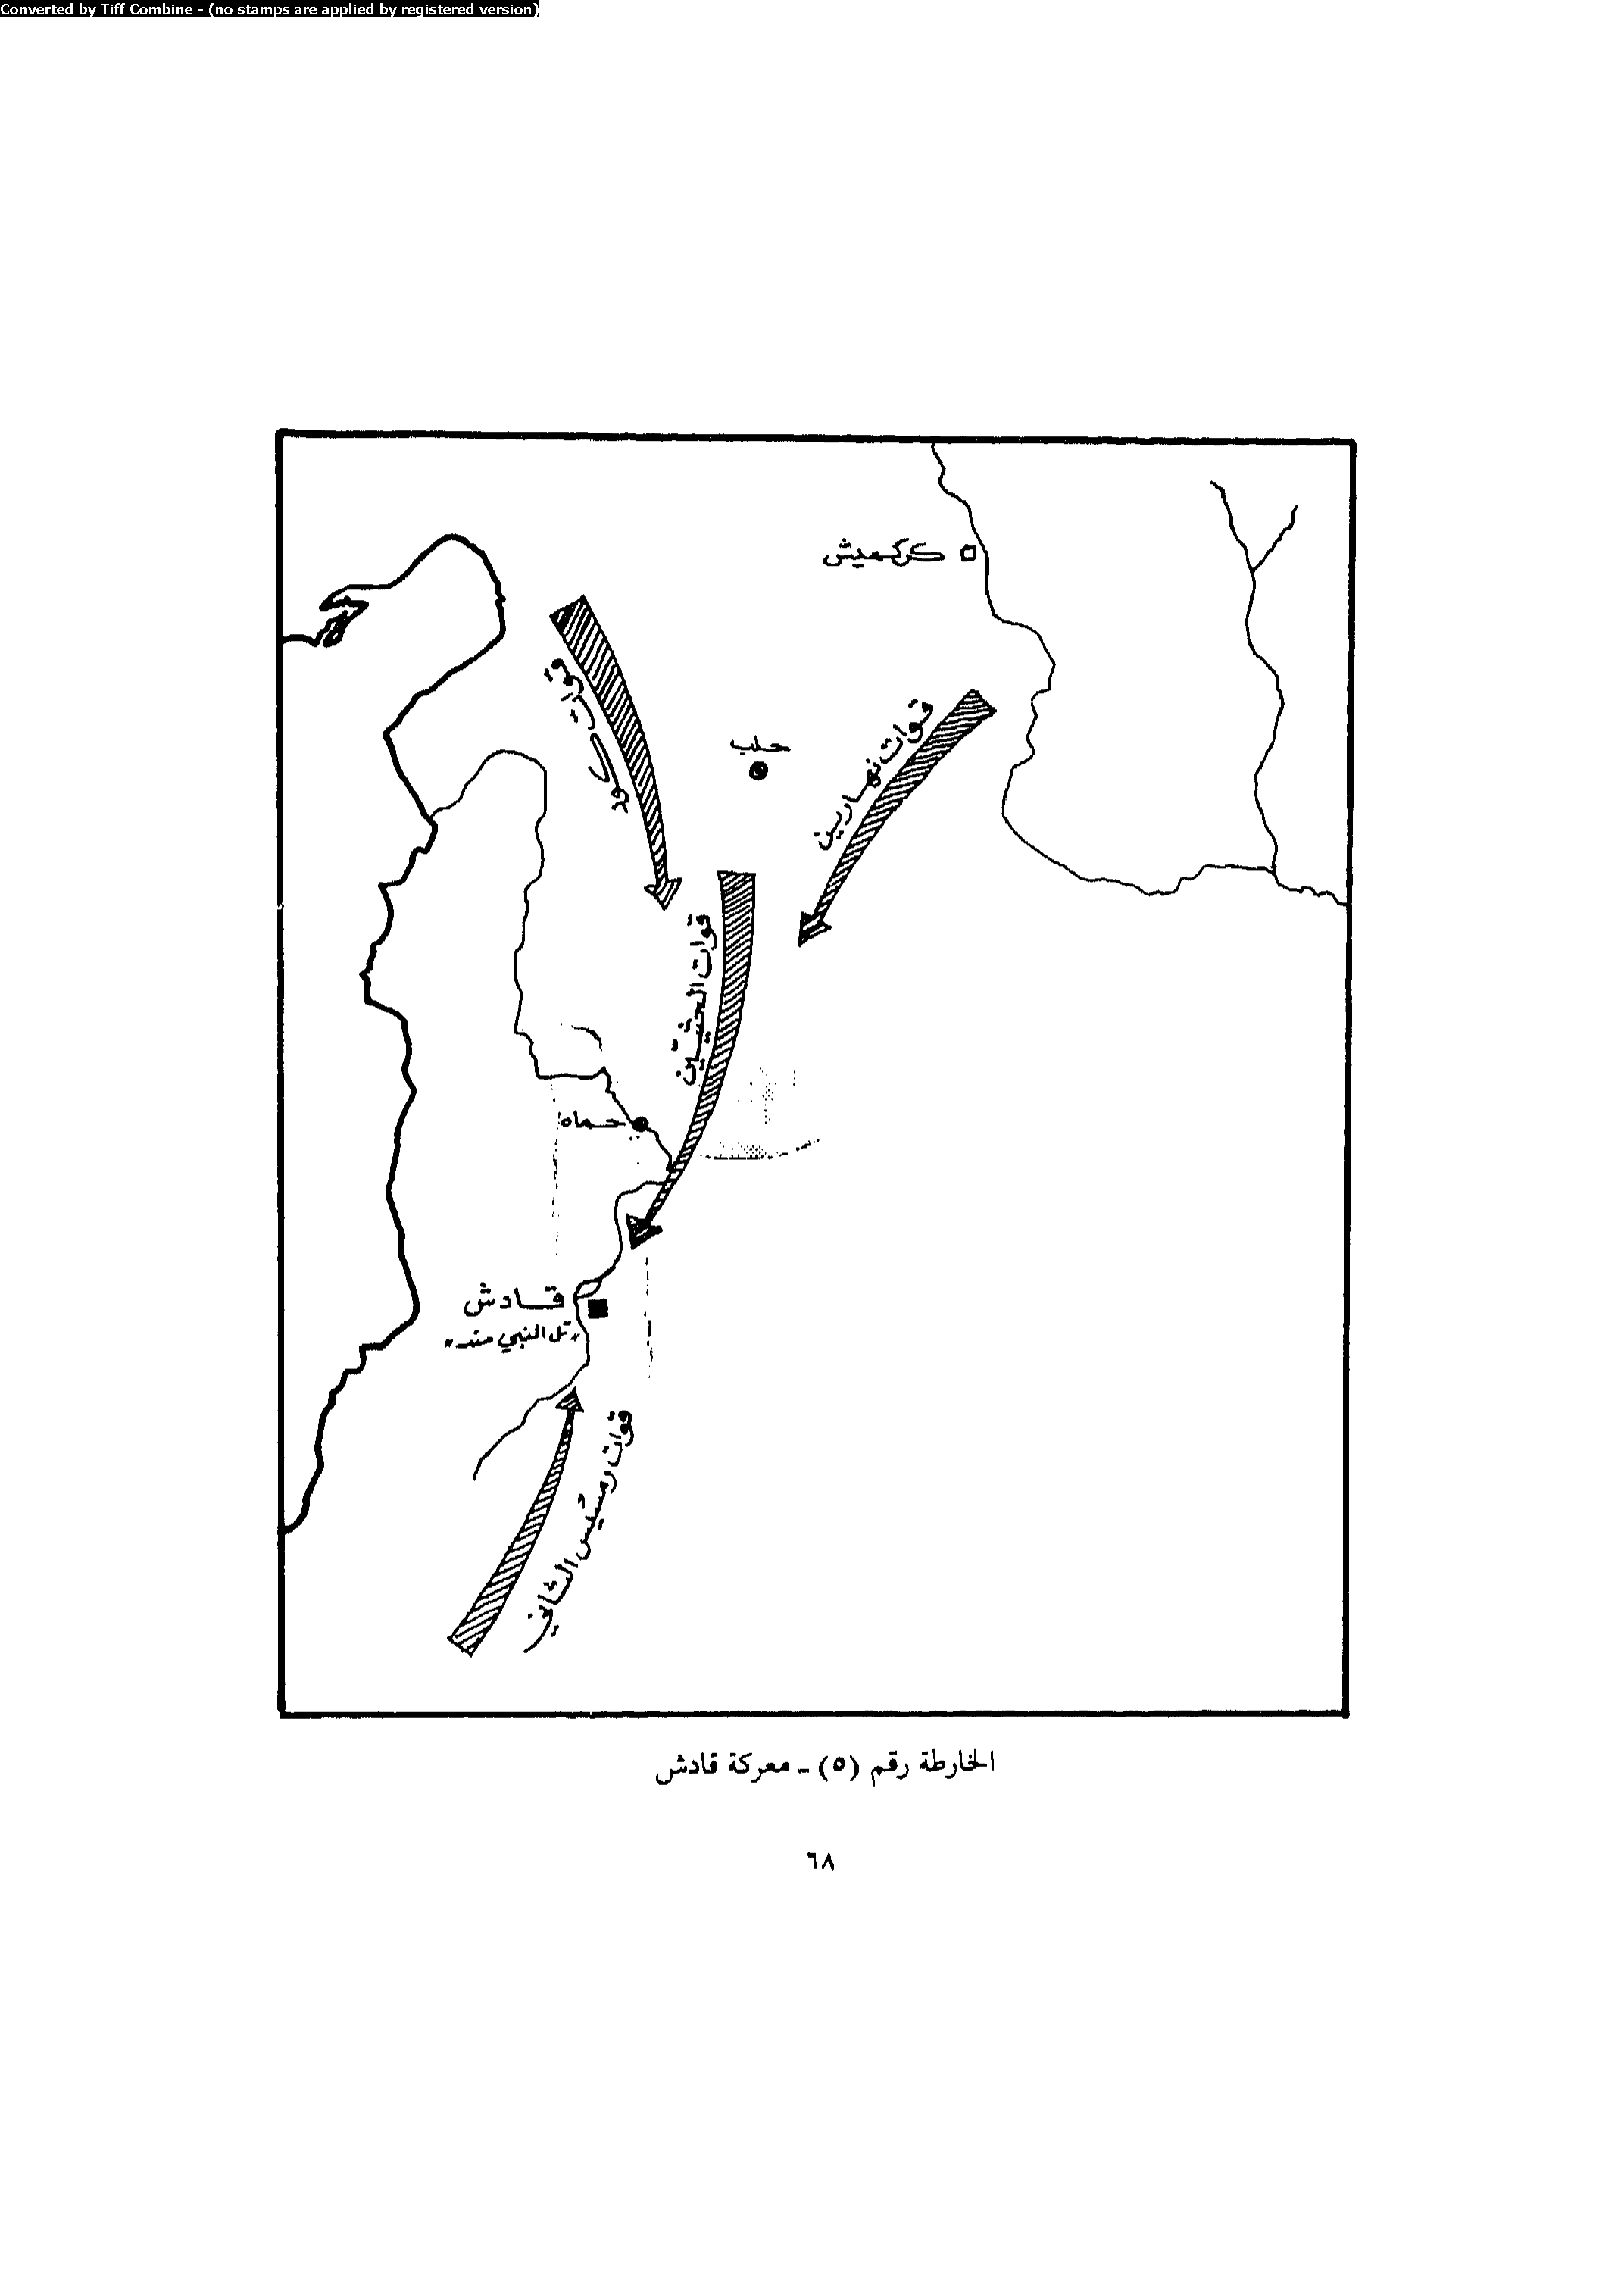 Converted by Tiff Combine - (no stamps are applied by registered version)
كركميش
قوات
حلب
قوات نهارين
قوات الحثيّين
حماه
قادش
«تل النبي مند»
قوات رمسيس الثاني
الخارطة رقم (٥) - معركة قادش
٦٨